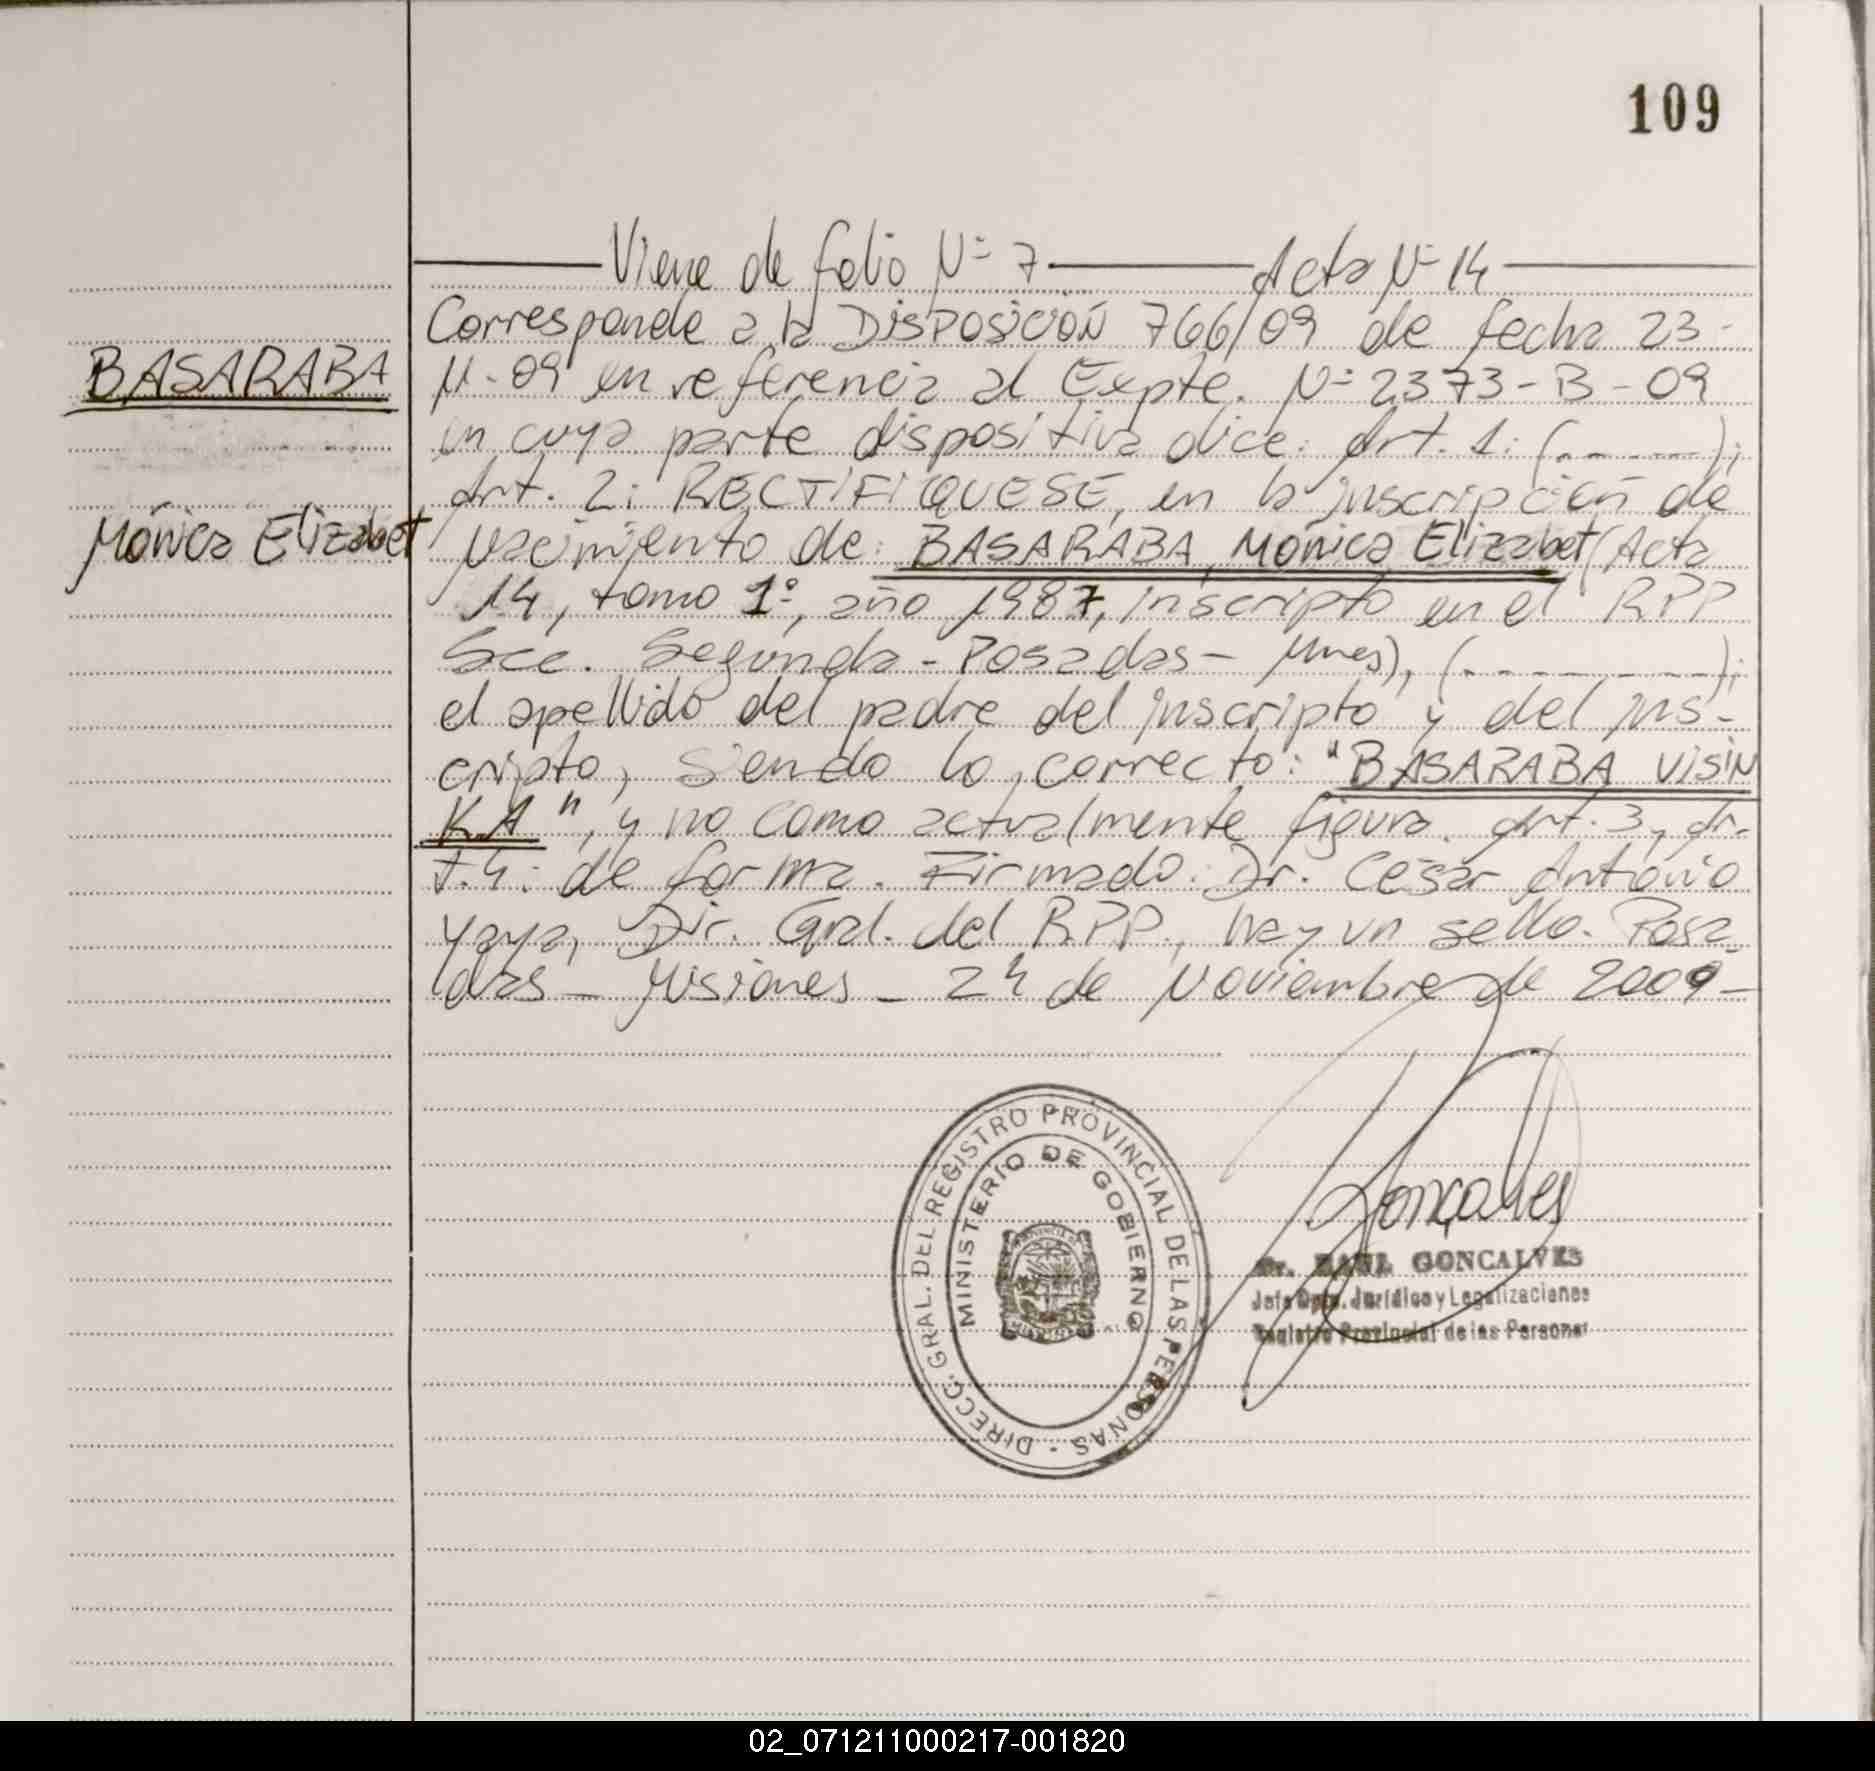 109
Viene de folio Nº 7 Acta Nº 14
Corresponde a la DISPOSICIÓN 766/09 de fecha 23-
BASARABA
11-09 en referencia al Expte. Nº 2373-B-09
en cuya parte dispositiva dice: Art. 1: (------);
Art. 2: RECTIFIQUESE, en la inscripción de
Mónica Elizabet
nacimiento de: BASARABA, Mónica Elizabet (Acta
14, tomo 1º, año 1987, inscripto en el RPP
Scc. Segunda - Posadas - Mnes), (---------);
el apellido del padre del inscripto y del ins-
cripto, siendo lo correcto: "BASARABA VISIN
KA", y no como actualmente figura. Art. 3, Ar-
t.4: de forma. Firmado: Dr. César Antonio
Yaya, Dir. Gral. del RPP., hay un sello. Posa-
das - Misiones - 24 de Noviembre de 2009-
DIRECC. GRAL. DEL REGISTRO PROVINCIAL DE LAS PERSONAS -
MINISTERIO DE GOBIERNO
Gonçalves
Dr. RAUL GONCALVES
Jefe Dpto. Jurídico y Legalizaciones
Registro Provincial de las Personas
02_071211000217-001820